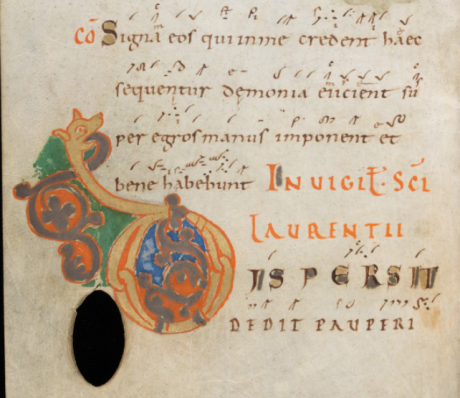 CO Signa eos qui in me credent haec
sequentur demonia eicient su
per egros manus imponent et
bene habebunt IN VIGIL SCI
LAURENTII
DISPERSIT
DEDIT PAUPERI